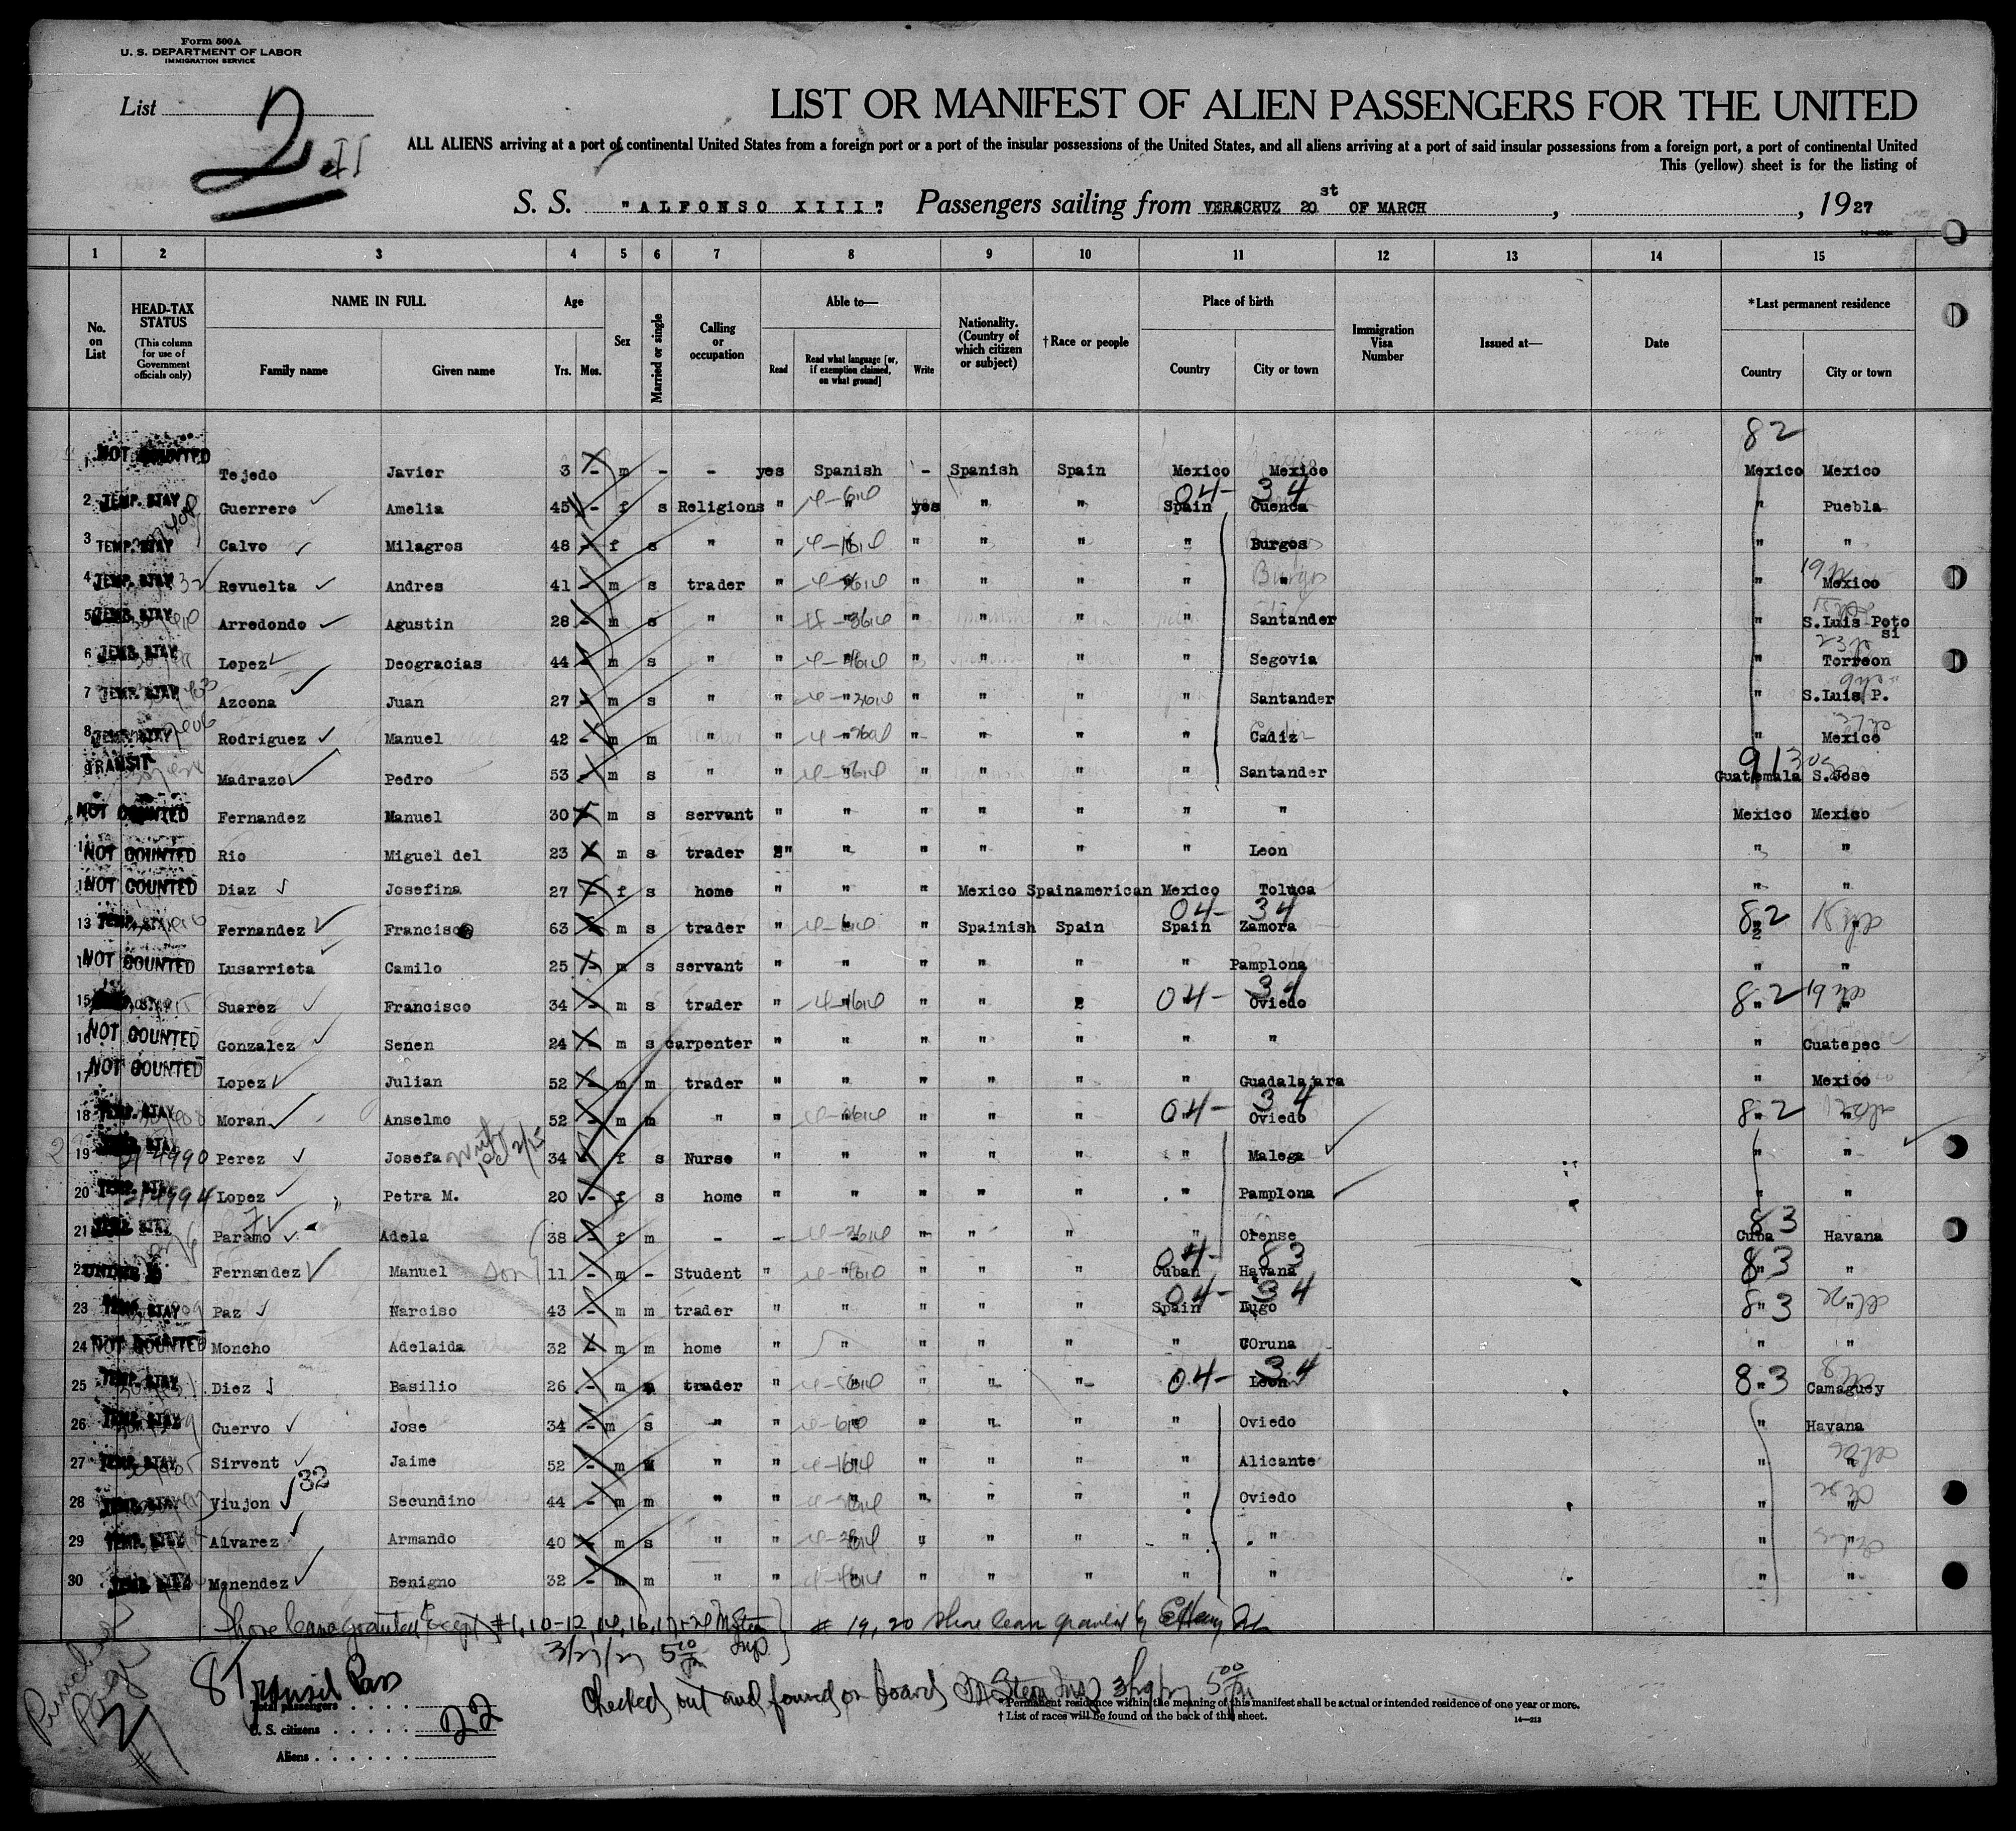 Form 500A
U. S. DEPARTMENT OF LABOR
IMMIGRATION SERVICE
List 2 II
LIST OR MANIFEST OF ALIEN PASSENGERS FOR THE UNITED
ALL ALIENS arriving at a port of continental United States from a foreign port or a port of the insular possessions of the United States, and all aliens arriving at a port of said insular possessions from a foreign port, a port of continental United
This (yellow) sheet is for the listing of
S. S. "ALFONSO XIII". Passengers sailing from VERACRUZ 20 st OF MARCH , , 1927
1 2 3 4 5 6 7 8 9 10 11 12 13 14 15
No. on List HEAD-TAX STATUS (This column for use of Government officials only) NAME IN FULL Family name Given name Age Yrs. Mos. Sex Married or single Calling or occupation Able to— Read Read what language [or, if exemption claimed, on what ground] Write Nationality. (Country of which citizen or subject) †Race or people Place of birth Country City or town Immigration Visa Number Issued at— Date *Last permanent residence Country City or town
82
1 NOT COUNTED Tejedo Javier 3 - m - - yes Spanish - Spanish Spain Mexico Mexico Mexico Mexico
04- 34
2 TEMP. STAY Guerrero Amelia 45 - f s Religions " " yes " " Spain Cuenca " Puebla
3 TEMP. STAY Calvo Milagros 48 - f s " " " " " " " Burgos " "
4 TEMP. STAY Revuelta Andres 41 - m s trader " " " " " " " " Mexico
5 TEMP. STAY Arredondo Agustin 28 - m s " " " " " " " Santander " S.Luis Poto si
6 TEMP. STAY Lopez Deogracias 44 - m s " " " " " " " Segovia " Torreon
7 TEMP. STAY Azcona Juan 27 - m s " " " " " " " Santander " S.Luis P.
8 TEMP. STAY Rodriguez Manuel 42 - m m " " " " " " " Cadiz " Mexico
9 TRANSIT Madrazo Pedro 53 - m s " " " " " " " Santander Guatemala S.Jose
NOT COUNTED Fernandez Manuel 30 - m s servant " " " " " " " Mexico Mexico
NOT COUNTED Rio Miguel del 23 - m s trader " " " " " " Leon " "
NOT COUNTED Diaz Josefina 27 - f s home " " " Mexico Spainamerican Mexico Toluca " "
04- 34
13 TEMP. STAY Fernandez Francisco 63 - m s trader " " " Spainish Spain Spain Zamora 82 "
NOT COUNTED Lusarrieta Camilo 25 - m s servant " " " " " " Pamplona " "
15 Suarez Francisco 34 - m s trader " " " " " 04- 34 Oviedo 82 "
16 NOT COUNTED Gonzalez Senen 24 - m s carpenter " " " " " " " " Cuatepec
17 NOT COUNTED Lopez Julian 52 - m m trader " " " " " " Guadalajara " Mexico
18 TEMP. STAY Moran Anselmo 52 - m m " " " " " " 04- 34 Oviedo 82 "
19 Perez Josefa 34 - f s Nurse " " " " " " Malega " "
20 TEMP. STAY Lopez Petra M. 20 - f s home " " " " " " Pamplona " "
21 Paramo Adela 38 - f m - - " " " " " Orense 83 Cuba Havana
04- 83
22 UNDER Fernandez Manuel son 11 - m - Student " " " " " Cuban Havana 83 "
04- 34
23 TEMP. STAY Paz Narciso 43 - m m trader " " " " " Spain Lugo 83 "
24 NOT COUNTED Moncho Adelaida 32 - m m home " " " " " " COruna " "
25 TEMP. STAY Diez Basilio 26 - m m trader " " " " " 04- 34 Leon 83 Camaguey
26 TEMP. STAY Cuervo Jose 34 - m s " " " " " " " Oviedo " Havana
27 TEMP. STAY Sirvent Jaime 52 - m " " " " " " " Alicante " "
28 Viujon 32 Secundino 44 - m m " " " " " " " Oviedo " "
29 TEMP. STAY Alvarez Armando 40 - m s " " " " " " " " " "
30 Menendez Benigno 32 - m m " " " " " " " " " "
Shore leave granted Except #1, 10-12, 14, 16, 17, 24 # 19, 20 Shore leave granted by
3/27/27 5
8 Transit Pass
Checked out and found on board
Total passengers . . . .
U. S. citizens . . . . . 22
Aliens . . . . . .
* Permanent residence within the meaning of this manifest shall be actual or intended residence of one year or more.
† List of races will be found on the back of this sheet.
14—213